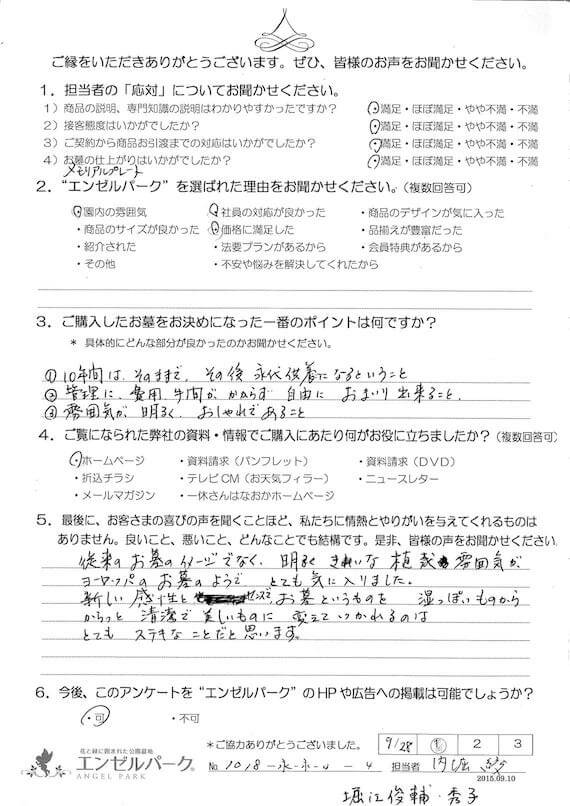 ご縁をいただきありがとうございます。ぜひ、皆様のお声をお聞かせください。
1．担当者の「応対」についてお聞かせください。
1）商品の説明、専門知識の説明はわかりやすかったですか？ ・満足・ほぼ満足・やや不満・不満
2）接客態度はいかがでしたか？ ・満足・ほぼ満足・やや不満・不満
3）ご契約から商品お引渡までの対応はいかがでしたか？ ・満足・ほぼ満足・やや不満・不満
4）お墓の仕上がりはいかがでしたか？ ・満足・ほぼ満足・やや不満・不満
メモリアルプレート
2．“エンゼルパーク”を選ばれた理由をお聞かせください。（複数回答可）
・園内の雰囲気 ・社員の対応が良かった ・商品のデザインが気に入った
・商品のサイズが良かった ・価格に満足した ・品揃えが豊富だった
・紹介された ・法要プランがあるから ・会員特典があるから
・その他 ・不安や悩みを解決してくれたから
3．ご購入したお墓をお決めになった一番のポイントは何ですか？
＊ 具体的にどんな部分が良かったのかお聞かせください。
①10年間は、そのままで、その後 永代供養になるということ
②管理に、費用、手間が かからず 自由に おまいり 出来ること、
③雰囲気が 明るく、おしゃれであること
4．ご覧になられた弊社の資料・情報でご購入にあたり何がお役に立ちましたか？（複数回答可）
・ホームページ ・資料請求（パンフレット） ・資料請求（DVD）
・折込チラシ ・テレビCM（お天気フィラー） ・ニュースレター
・メールマガジン ・一休さんはなおかホームページ
5．最後に、お客さまの喜びの声を聞くことほど、私たちに情熱とやりがいを与えてくれるものは
ありません。良いこと、悪いこと、どんなことでも結構です。是非、皆様の声をお聞かせください。
従来の お墓のイメージでなく、明るく きれいな 植栽 雰囲気が
ヨーロッパの お墓のようで とても 気に入りました。
新しい 感性と センスで、お墓というものを 湿っぽいものから
からっと 清潔で 美しいものに 変えて いかれるのは
とても ステキな ことだと 思います。
6．今後、このアンケートを“エンゼルパーク”のHPや広告への掲載は可能でしょうか？
・可 ・不可
花と緑に囲まれた公園墓地
エンゼルパーク®
ANGEL PARK
＊ご協力ありがとうございました。 9/28 1 2 3
No. 1018 4 担当者 内堀
2015.09.10
堀江俊輔・秀子